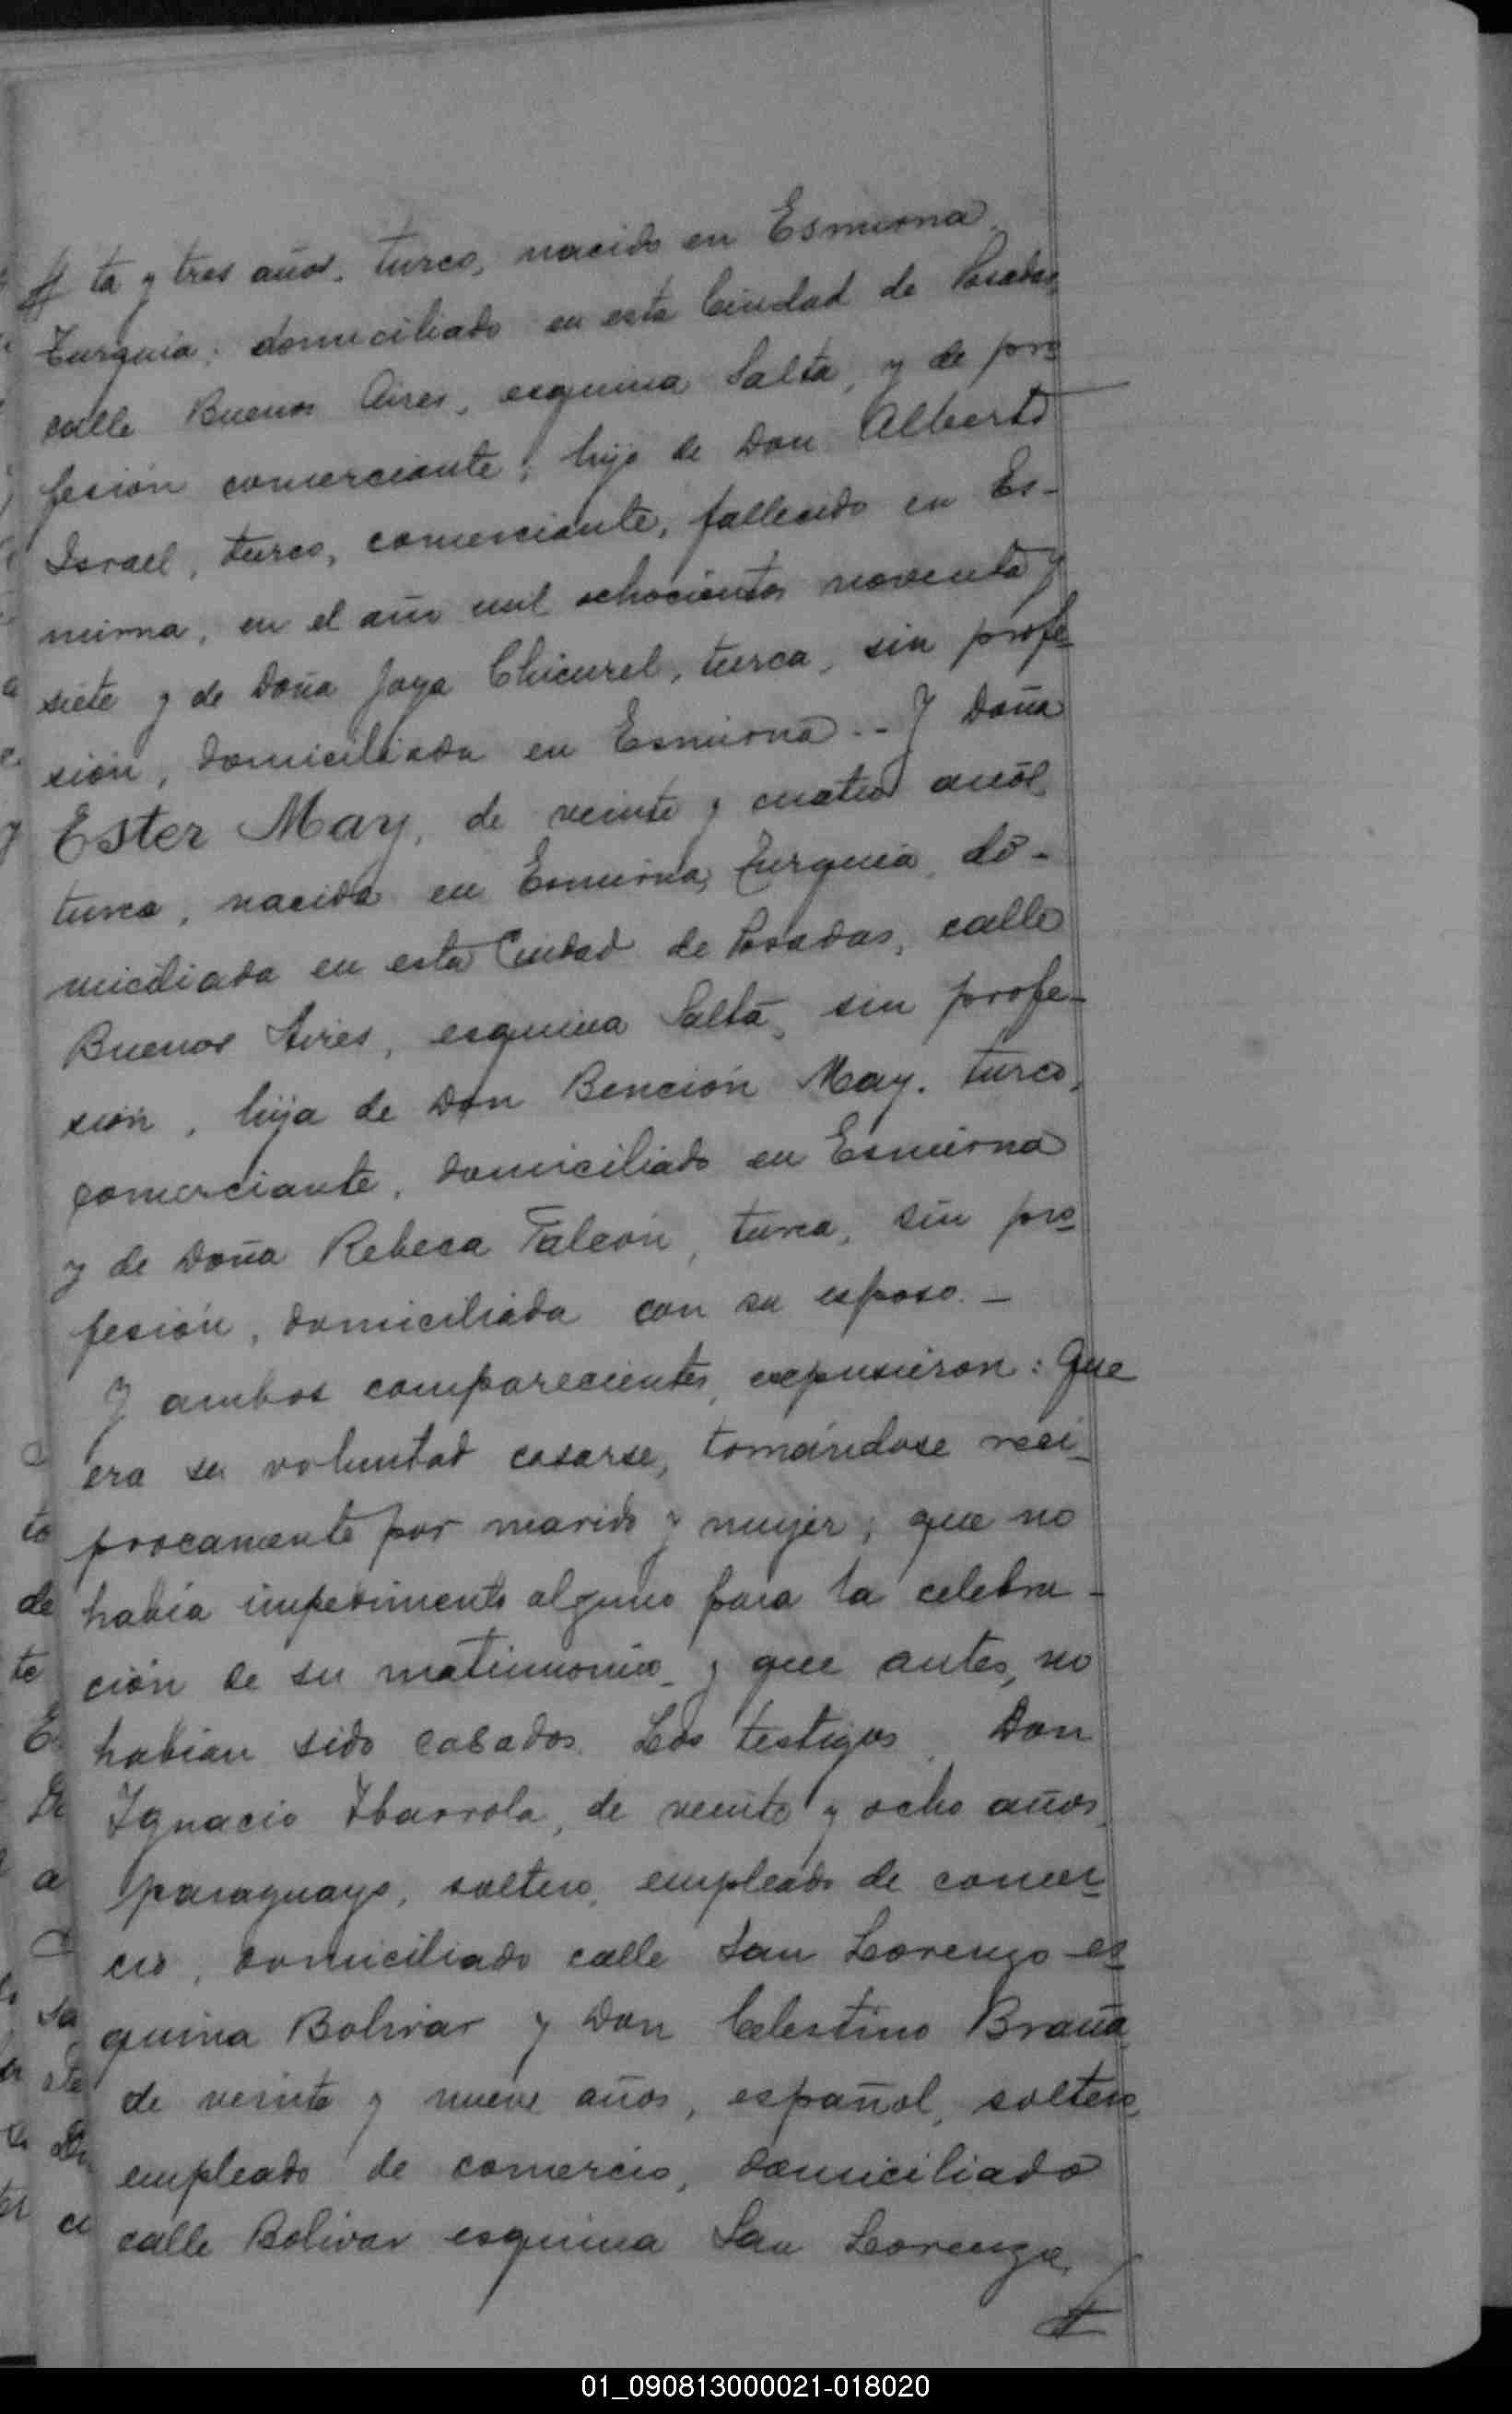 ta y tres años, turco, nacido en Esmirna,
Turquía; domiciliado en esta Ciudad de Posadas,
calle Buenos Aires, esquina Salta, y de pro
fesión comerciante; hijo de Don Alberto
Israel, turco, comerciante, fallecido en Es-
mirna, en el año mil ochocientos noventa y
siete y de Doña Joya Chicurel, turca, sin profe-
sión, domiciliada en Esmirna.- Y Doña
Ester May, de veinte y cuatro años,
turca, nacida en Esmirna, Turquía, do-
miciliada en esta Ciudad de Posadas, calle
Buenos Aires, esquina Salta, sin profe-
sión, hija de Don Bención May, turco,
comerciante, domiciliado en Esmirna
y de Doña Rebeca Falcón, turca, sin pro
fesión, domiciliada con su esposo.-
Y ambos comparecientes, expusieron: Que
era su voluntad casarse, tomándose reci-
procamente por marido y mujer; que no
había impedimento alguno para la celebra-
ción de su matrimonio y que antes, no
habían sido casados. Los testigos, Don
Ignacio Ibarrola, de veinte y ocho años,
paraguayo, soltero, empleado de comer-
cio, domiciliado calle San Lorenzo es-
quina Bolivar y Don Celestino Braña
de veinte y nueve años, español, soltero,
empleado de comercio, domiciliado
calle Bolivar esquina San Lorenzo,
01_090813000021-018020